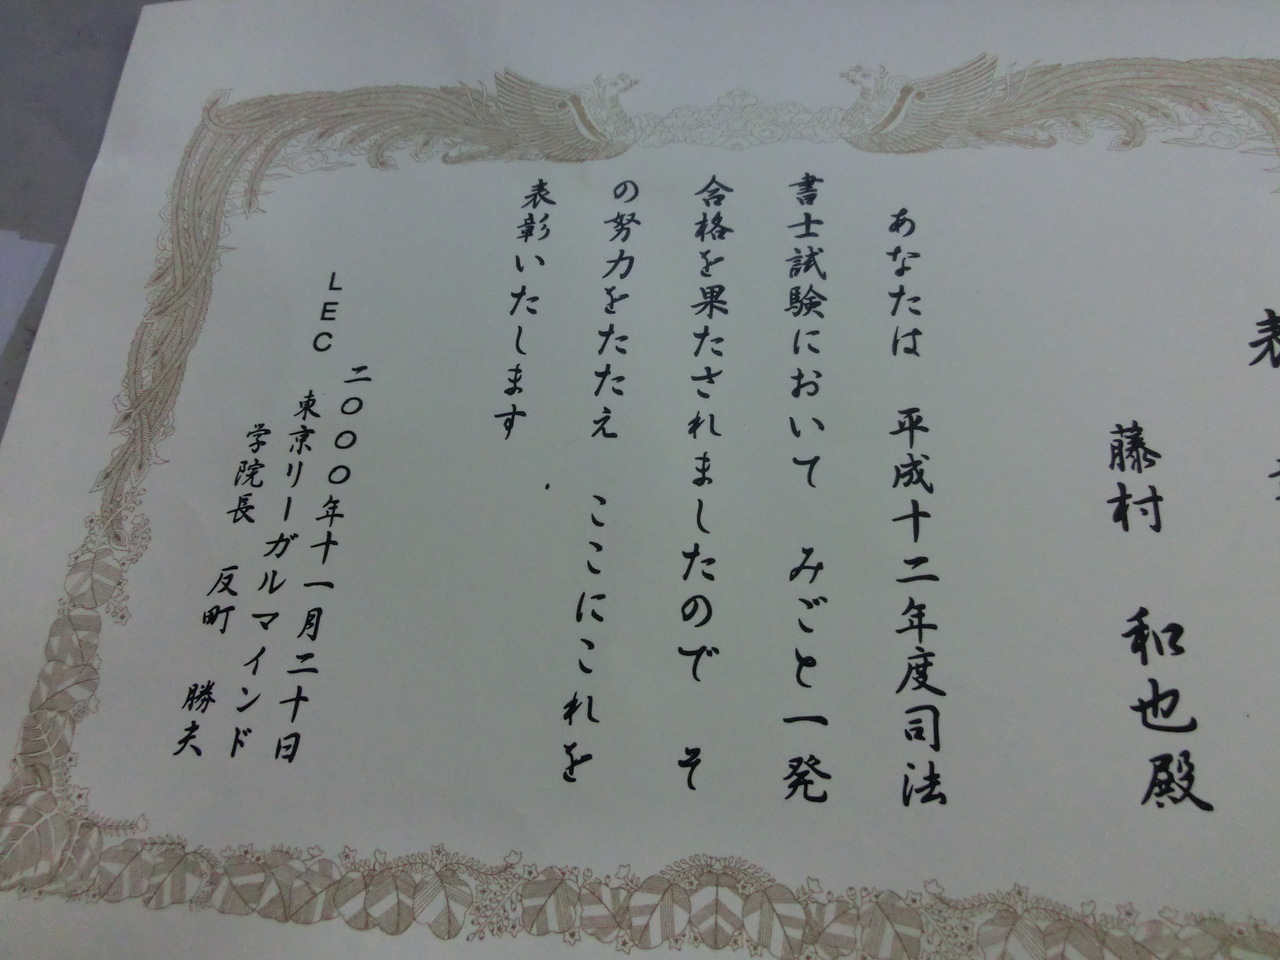 表
藤村 和也殿
あなたは 平成十二年度司法
書士試験において みごと一発
合格を果たされましたので そ
の努力をたたえ ここにこれを
表彰いたします
二〇〇〇年十一月二十日
LEC 東京リーガルマインド
学院長 反町 勝夫